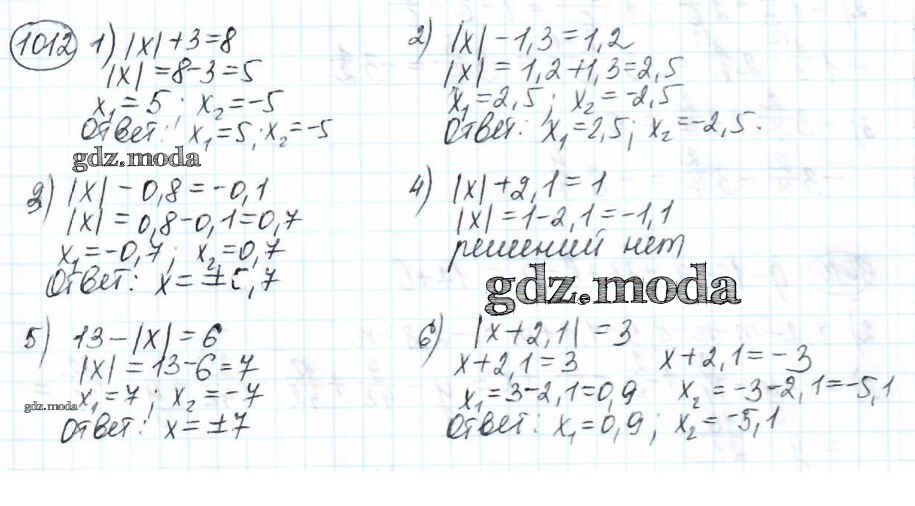 1012 1) |x|+3=8
|x|=8-3=5
x₁=5; x₂=-5
Ответ: x₁=5; x₂=-5
gdz.moda
2) |x|-1,3=1,2
|x|=1,2+1,3=2,5
x₁=2,5; x₂=-2,5
Ответ: x₁=2,5; x₂=-2,5.
3) |x|-0,8=-0,1
|x|=0,8-0,1=0,7
x₁=-0,7; x₂=0,7
Ответ: x=±0,7
4) |x|+2,1=1
|x|=1-2,1=-1,1
решений нет
gdz.moda
5) 13-|x|=6
|x|=13-6=7
x₁=7; x₂=-7
gdz.moda
Ответ: x=±7
6) |x+2,1|=3
x+2,1=3 x+2,1=-3
x₁=3-2,1=0,9 x₂=-3-2,1=-5,1
Ответ: x₁=0,9; x₂=-5,1